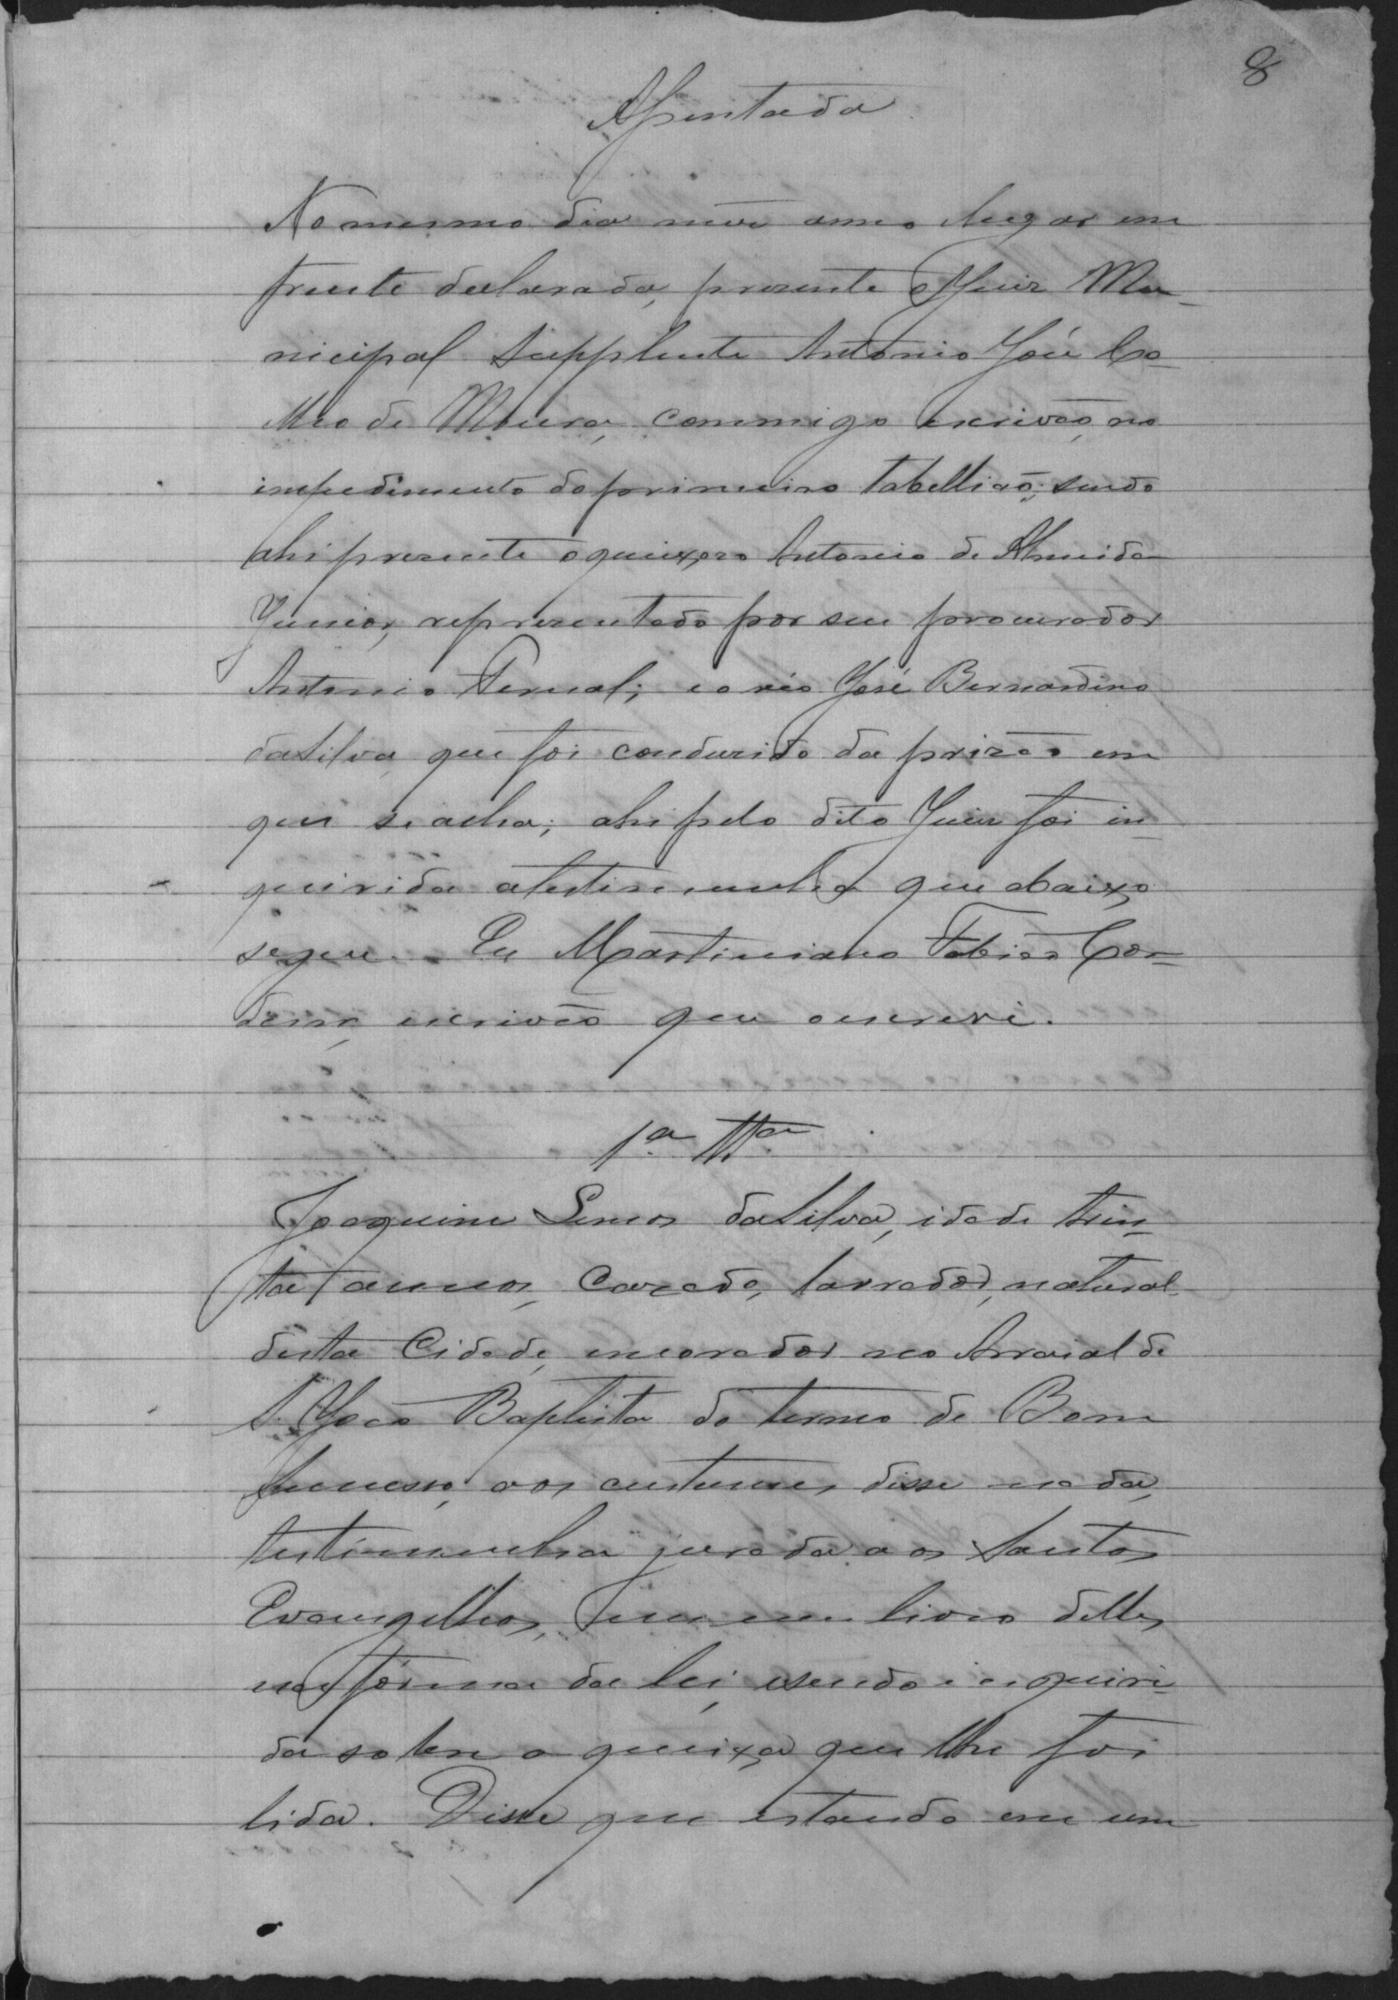 8
Assentada
No mesmo dia mez anno lugar em
frente declarado, prezente o Juiz Mu-
nicipal Supplente Antonio José Co-
elho de Moura, commigo escrivão, no
impedimento do primeiro tabellião; sendo
ahi prezente o queixozo Antonio de Almeida
Junior, reprezentado por seu procurador
Antonio Pernal; e o réo José Bernardino
da Silva, que foi conduzido da prizão em
que se acha; ahi pelo dito Juiz foi in-
quirida a testimunha que abaixo
segue. Eu Martiniano Tobias Cor-
deiro, escrivão que o escrevi.
1ª Ttª
Joaquim Lemos da Silva, idade trin-
ta annos, cazado, lavrador, natural
desta Cidade, e morador no Arraial de
S. João Baptista do termo de Bom
Sucesso; aos custumes disse nada,
testimunha jurada aos Santos
Evangelhos, em um livro delles
na fórma da lei, e sendo inquiri-
da sobre a queixa que lhe foi
lida. Disse que estando em um